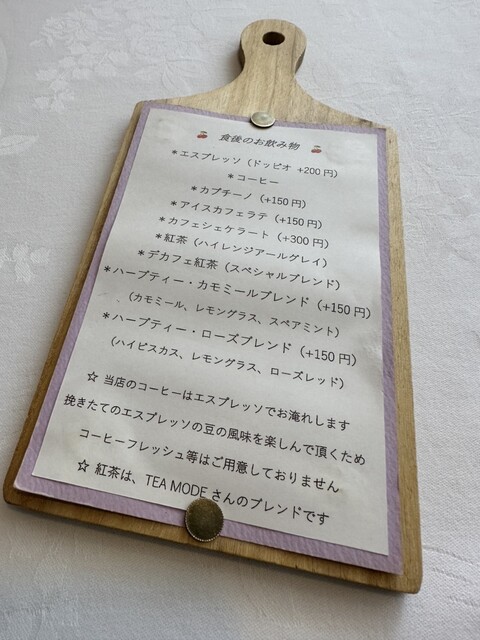 食後のお飲み物
＊エスプレッソ（ドッピオ +200円）
＊コーヒー
＊カプチーノ（+150円）
＊アイスカフェラテ（+150円）
＊カフェシェケラート（+300円）
＊紅茶（ハイレンジアールグレイ）
＊デカフェ紅茶（スペシャルブレンド）
＊ハーブティー・カモミールブレンド（+150円）
（カモミール、レモングラス、スペアミント）
＊ハーブティー・ローズブレンド（+150円）
（ハイビスカス、レモングラス、ローズレッド）
☆ 当店のコーヒーはエスプレッソでお淹れします
挽きたてのエスプレッソの豆の風味を楽しんで頂くため
コーヒーフレッシュ等はご用意しておりません
☆ 紅茶は、TEA MODEさんのブレンドです